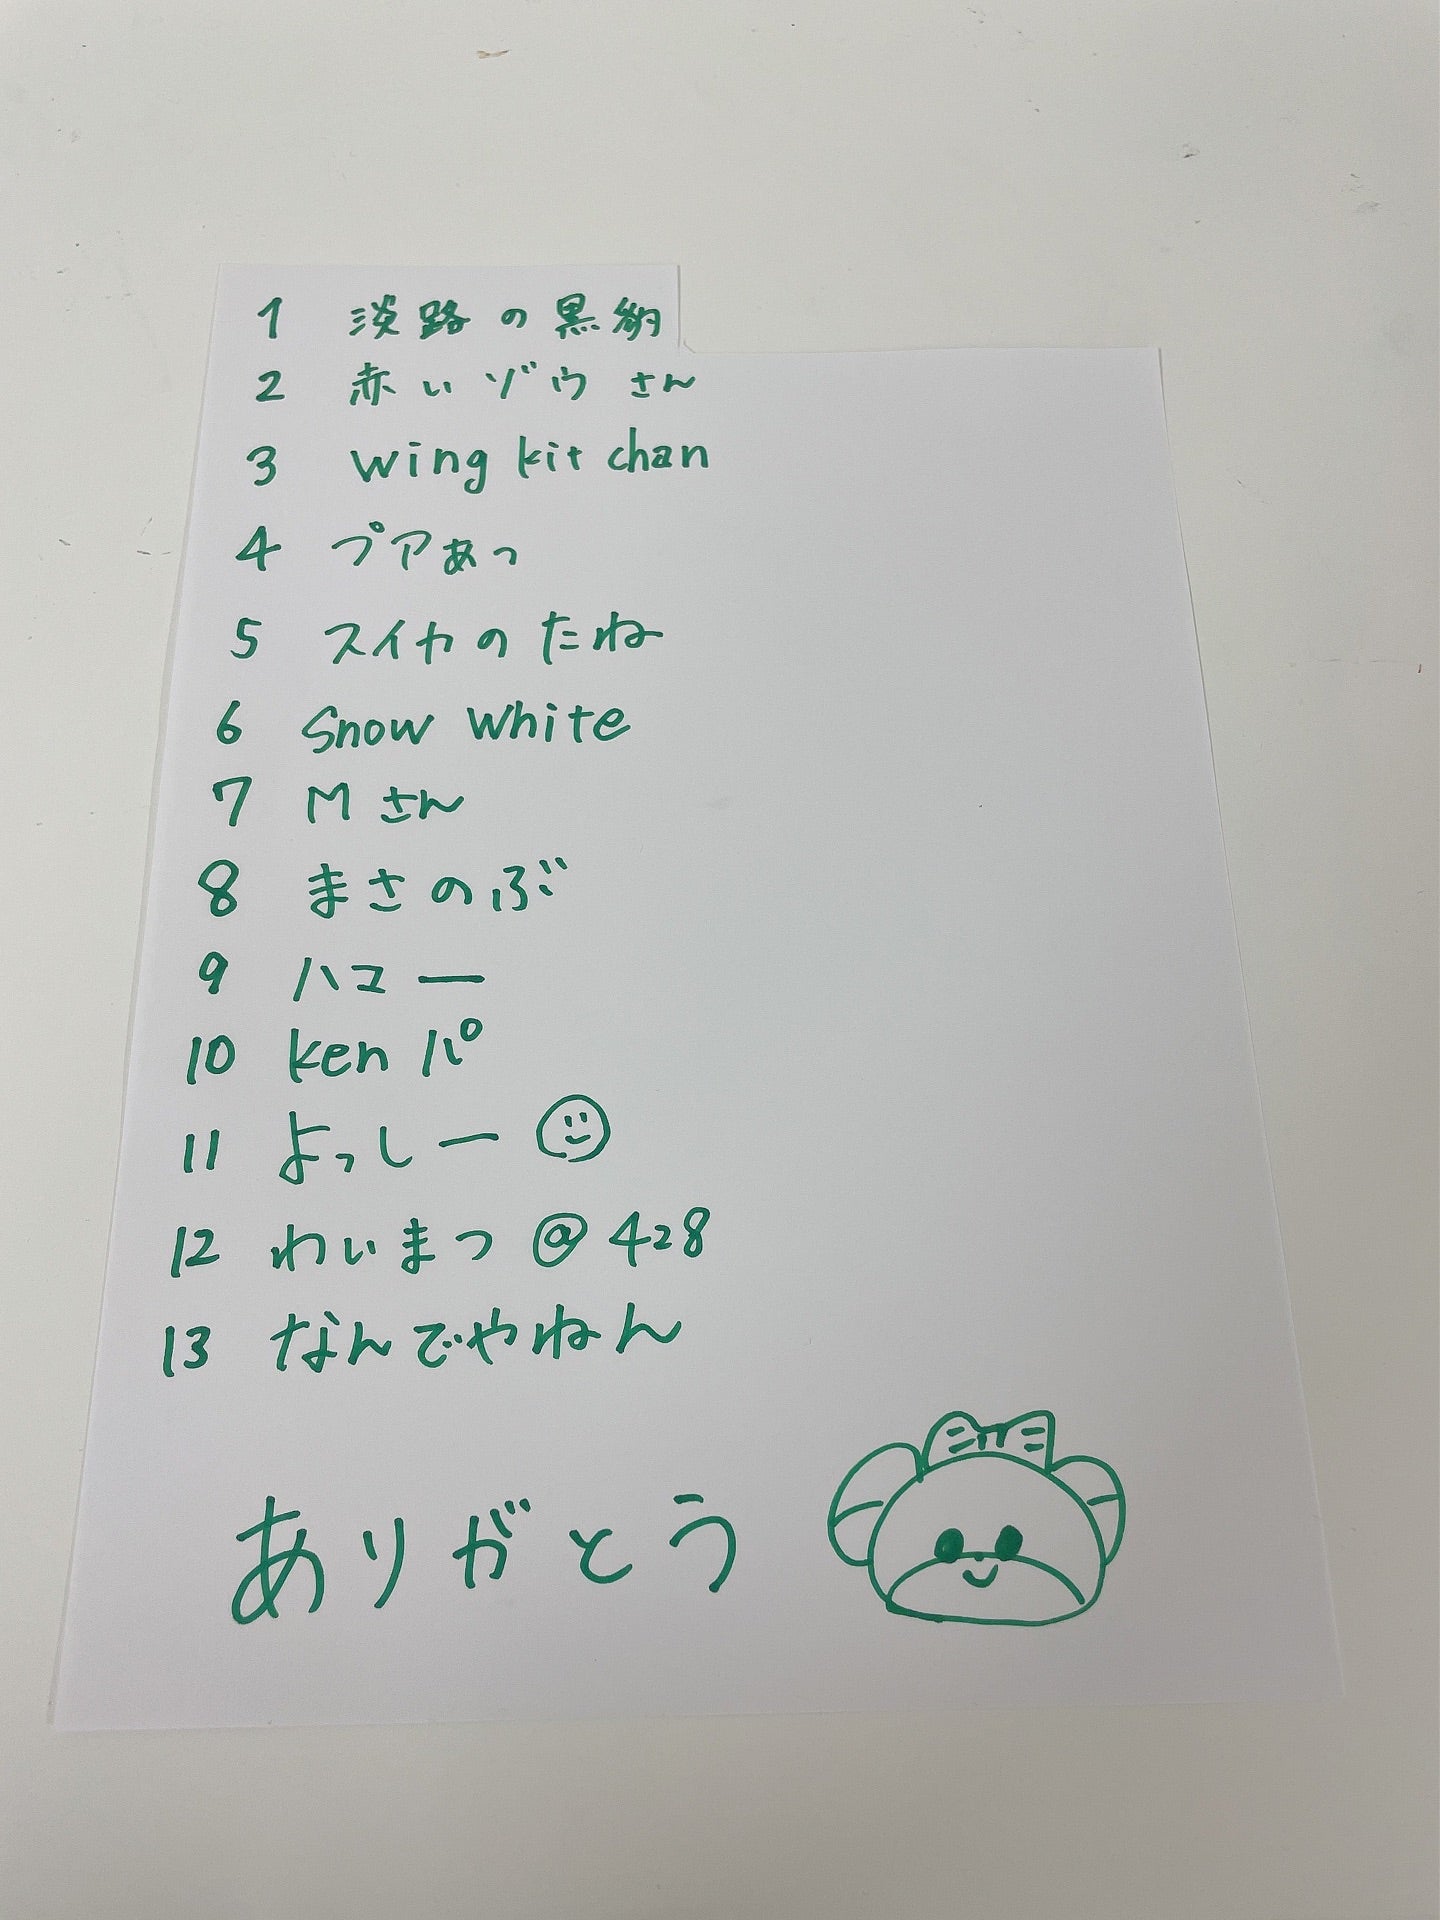 1 淡路の黒豹
2 赤いゾウさん
3 wing kit chan
4 プアあっ
5 スイカのたね
6 Snow White
7 Mさん
8 まさのぶ
9 ハコー
10 kenパ
11 よっしー☺
12 わいまつ@428
13 なんでやねん
ありがとう